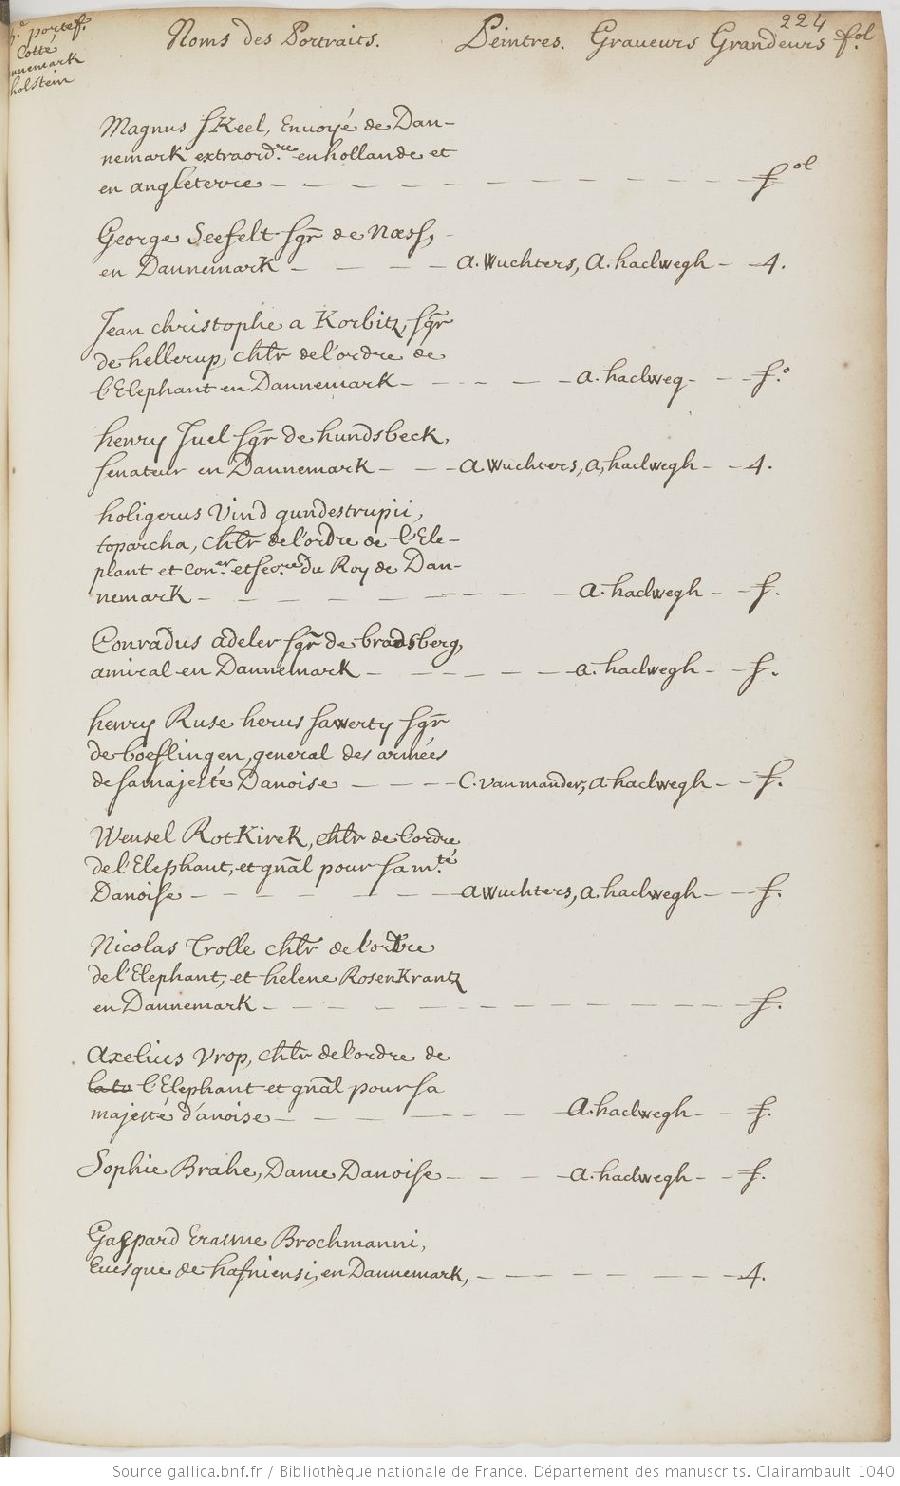 224
portef.
Cotté
Dannemark
holstein
Noms des Portraits. Peintres. Graveurs Grandeurs fol
Magnus SKeel, Envoyé de Dan-
nemark extraord.re en hollande et
en angleterre - - - - - - - - - - - - f.ol
George Seefelt sgr de Næss, -
en Dannemark - - - - a. Wuchters, a. haclwegh - - 4.
Jean christophe a Korbitz, sgr
de hellerup, chlr de l'ordre de
l'Elephant en Dannemark - - - - - a. haclweg - - - f.o
henry Juel sgr de hundsbeck,
senateur en Dannemark - - - a Wuchters, a, haclwegh - - 4.
holigerus Vind gundestrupii,
toparcha, chlr de l'ordre de l'Ele-
phant et con.er et secre.re du Roy de Dan-
nemark - - - - - - - - - a. haclwegh - - f.
Conradus adeler sgr de bradsberg,
amiral en Dannemark - - - - - - a. haclwegh - - f.
henry Ruse herus sawerty sgr
de boeflingen, general des armées
de sa majesté Danoise - - - - C. van mander, a. haclwegh - - f.
Wensel RotKirck, chlr de l'ordre
de l'Elephant, et gnãl pour sa m.té
Danoise - - - - - - - a wuchters, a. haclwegh - - f.
Nicolas Trolle chlr de l'ordre
de l'Elephant, et helene RosenKrantz
en Dannemark - - - - - - - - - - - - - f.
Axelius Vrop, chlr de l'ordre de
la to l'Elephant et gnãl pour sa
majesté d'anoise - - - - - - - A. haclwegh - - f.
Sophie Brahe, Dame Danoise - - - - a. haclwegh - - f.
Gaspard Erasme Brochmanni,
Evesque de hafniensi, en Dannemark, - - - - - - - - 4.
Source gallica.bnf.fr / Bibliothèque nationale de France. Département des manuscrits. Clairambault 1040